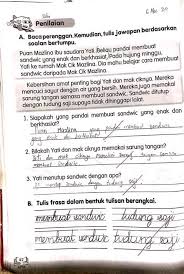 6 Mac 20
Penilaian
A. Baca perenggan. Kemudian, tulis jawapan berdasarkan
soalan bertumpu.
Puan Mazlina ibu saudara Yati. Beliau pandai membuat
sandwic yang enak dan berkhasiat. Pada hujung minggu,
Yati ke rumah Mak Cik Mazlina. Dia mahu belajar cara membuat
sandwic daripada Mak Cik Mazlina.
Kebersihan amat penting bagi Yati dan mak ciknya. Mereka
mencuci sayur dengan air yang bersih. Mereka juga memakai
sarung tangan semasa membuat sandwic. Sandwic ditutup
dengan tudung saji supaya tidak dihinggapi lalat.
1. Siapakah yang pandai membuat sandwic yang enak dan
berkhasiat?
Puan Mazlina yang pandai membuat sandwic
yang enak dan berkhasiat.
2. Bilakah Yati dan mak ciknya memakai sarung tangan?
Yati dan mak ciknya memakai sarung tangan semasa
membuat sandwic.
3. Yati menutup sandwic dengan apa?
Yati menutup sandwic dengan tudung saji.
B. Tulis frasa dalam bentuk tulisan berangkai.
membuat sandwic tudung saji
membuat sandwic tudung saji